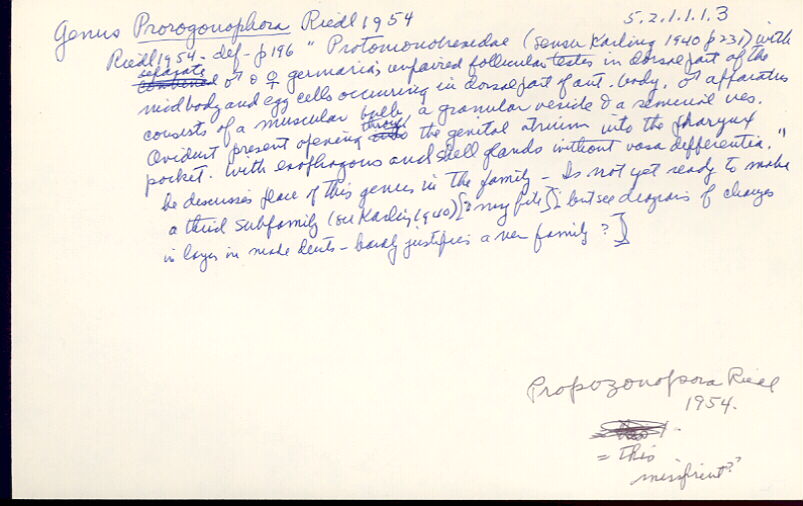 Genus Prorogonophora Riedl 1954
5.2.1.1.1.3
Riedl 1954 - def - p 196 " Protomonotresidae (sensu Karling 1940 p 231) with
separate combined ♂ & ♀ germaria; unpaired follicular testes in dorsal part of the
midbody and egg cells occurring in dorsal part of ant. body. ♂ apparatus
consists of a muscular bulb, a granular vesicle & a seminal ves.
Oviduct present opening through the genital atrium into the pharynx
pocket. With esophagous and shell glands without vasa differentia."
he discusses place of this genus in the family - Is not yet ready to make
a third subfamily (see Karling 1940) [? my file]; but see diagrams of changes
in in male - barely justifies a new family ? ]
Propozonopsora Riedl
1954.
= this
misprint??